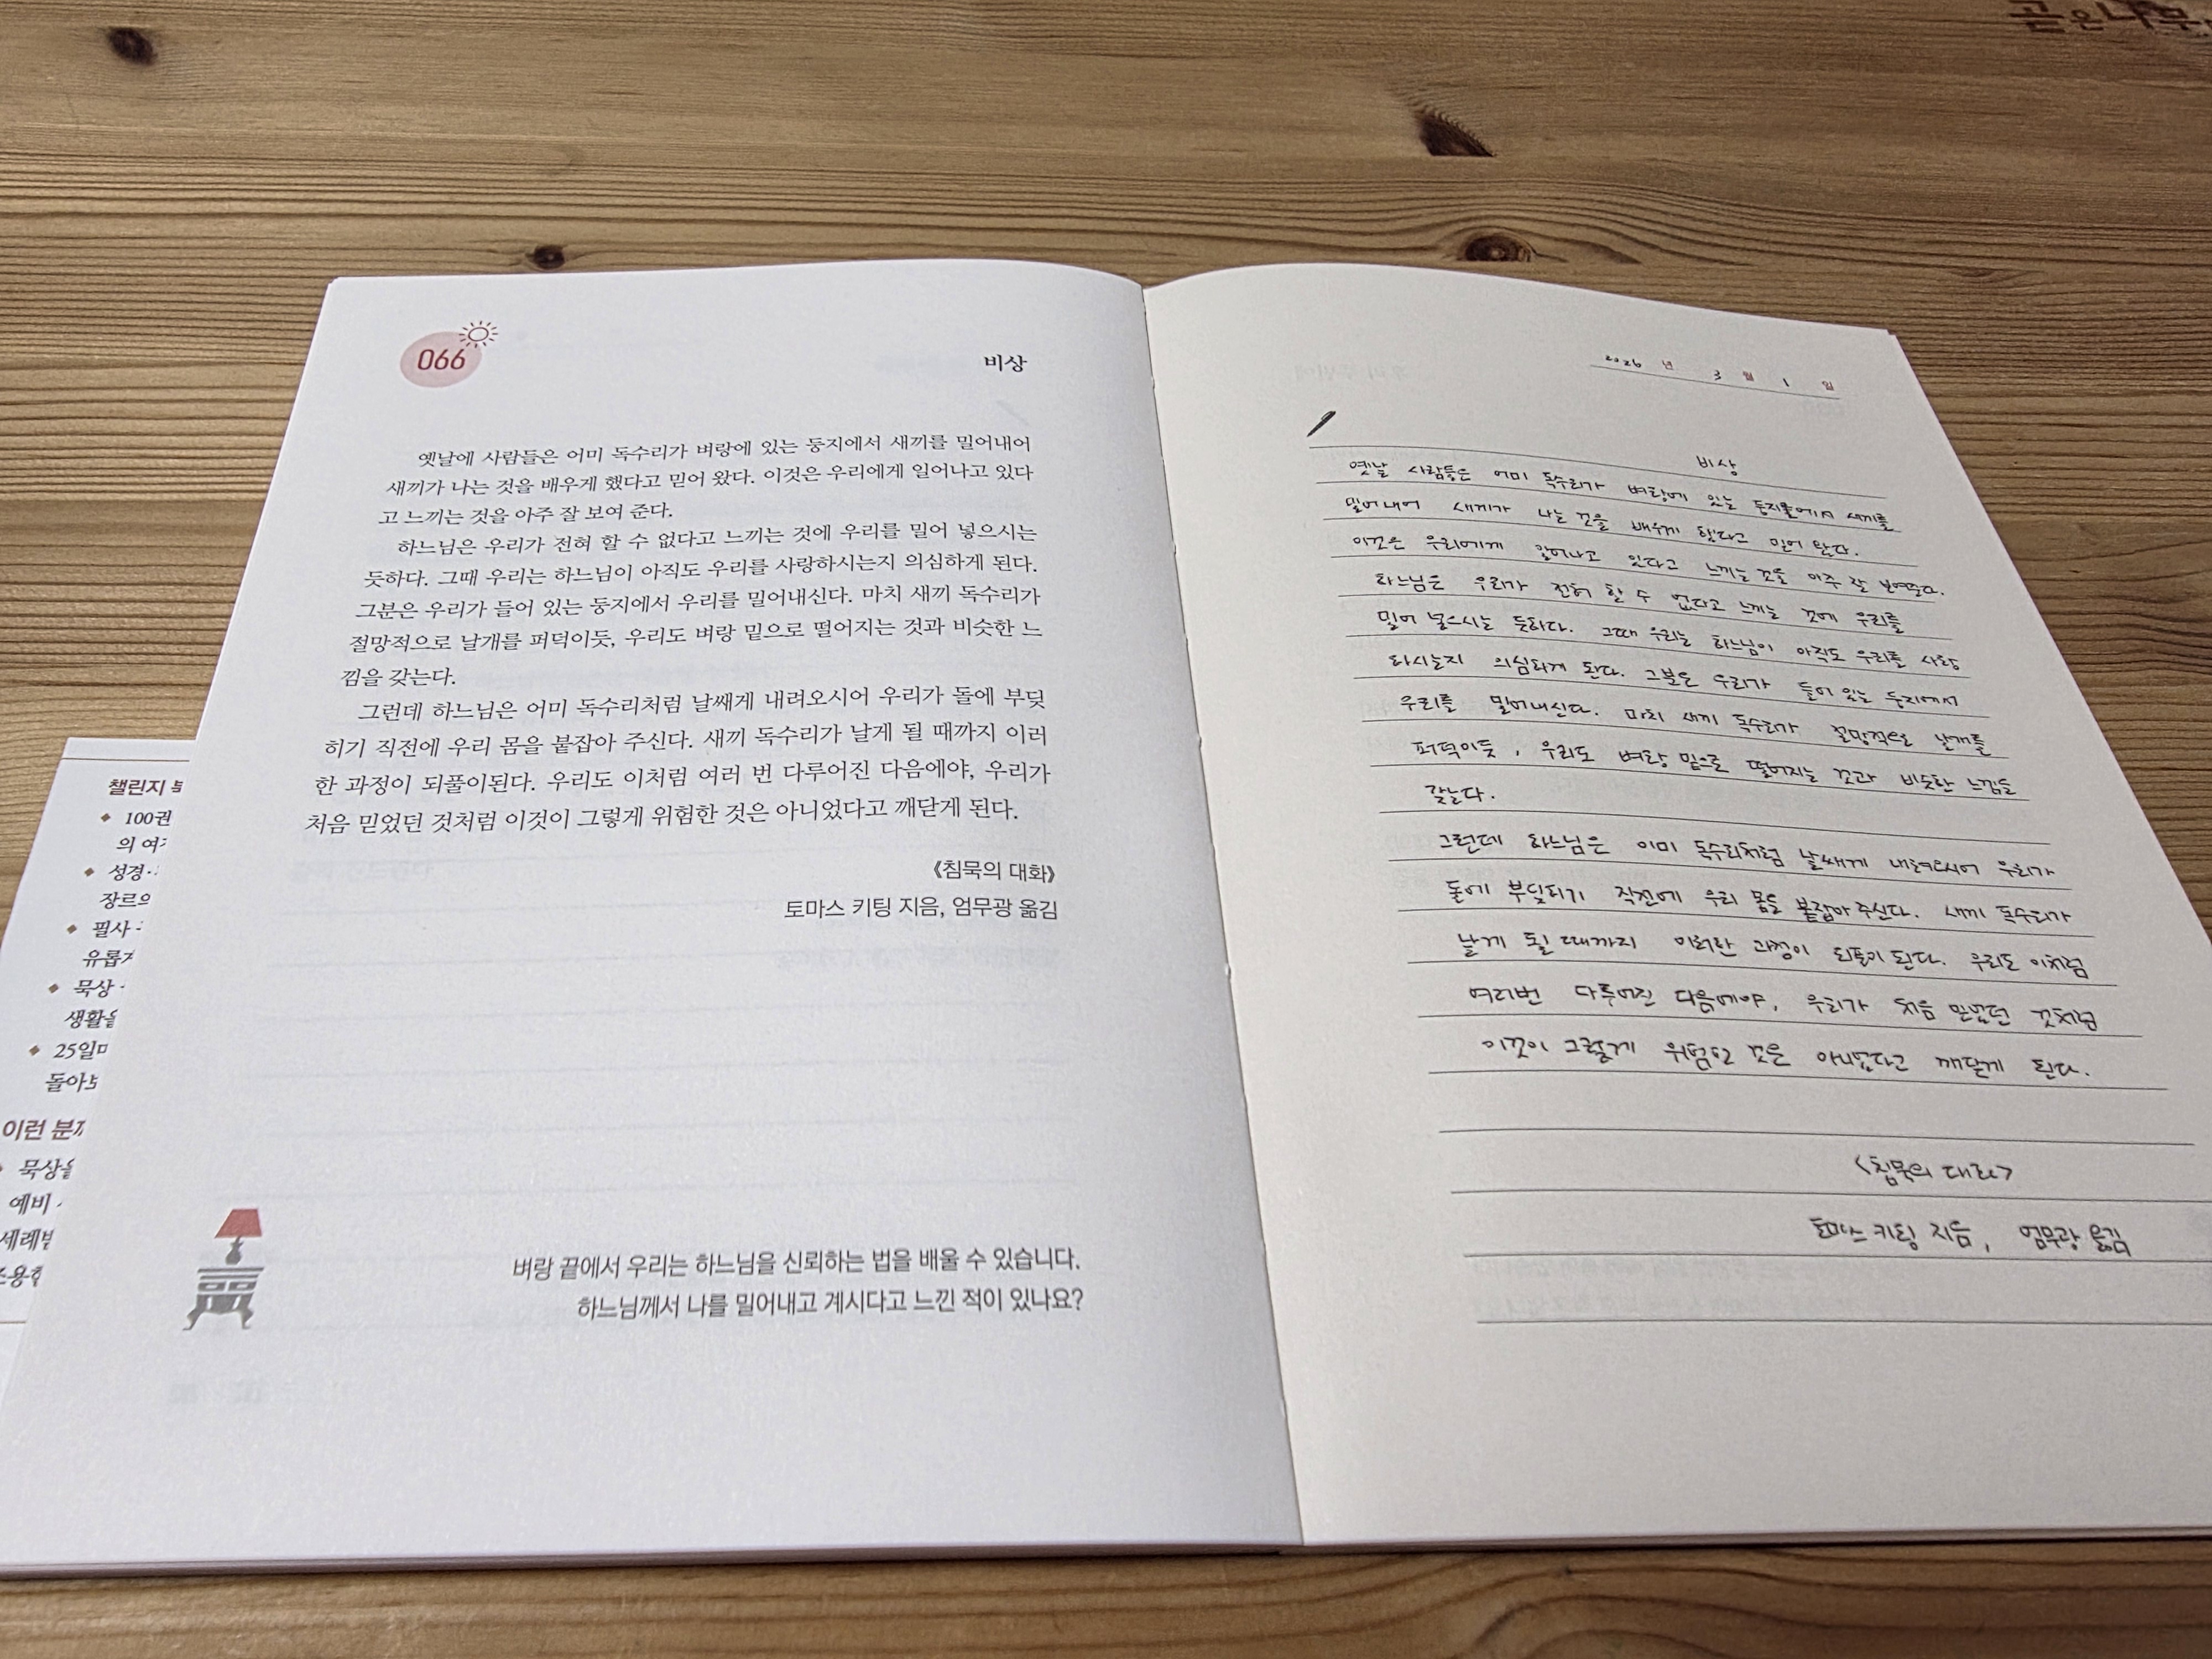 곧은나무
066
비상
옛날에 사람들은 어미 독수리가 벼랑에 있는 둥지에서 새끼를 밀어내어
새끼가 나는 것을 배우게 했다고 믿어 왔다. 이것은 우리에게 일어나고 있다
고 느끼는 것을 아주 잘 보여 준다.
하느님은 우리가 전혀 할 수 없다고 느끼는 것에 우리를 밀어 넣으시는
듯하다. 그때 우리는 하느님이 아직도 우리를 사랑하시는지 의심하게 된다.
그분은 우리가 들어 있는 둥지에서 우리를 밀어내신다. 마치 새끼 독수리가
절망적으로 날개를 퍼덕이듯, 우리도 벼랑 밑으로 떨어지는 것과 비슷한 느
낌을 갖는다.
그런데 하느님은 어미 독수리처럼 날쌔게 내려오시어 우리가 돌에 부딪
히기 직전에 우리 몸을 붙잡아 주신다. 새끼 독수리가 날게 될 때까지 이러
한 과정이 되풀이된다. 우리도 이처럼 여러 번 다루어진 다음에야, 우리가
처음 믿었던 것처럼 이것이 그렇게 위험한 것은 아니었다고 깨닫게 된다.
《침묵의 대화》
토마스 키팅 지음, 엄무광 옮김
벼랑 끝에서 우리는 하느님을 신뢰하는 법을 배울 수 있습니다.
하느님께서 나를 밀어내고 계시다고 느낀 적이 있나요?
챌린지
100권
의
성경·
장르의
필사
묵상
25일
이런
예비
2026 년 3 월 1 일
비상
옛날 사람들은 어미 독수리가 벼랑에 있는 둥지에서 새끼를
밀어내어 새끼가 나는 것을 배우게 했다고 믿어 왔다.
이것은 우리에게 일어나고 있다고 느끼는 것을 아주 잘 보여준다.
하느님은 우리가 전혀 할 수 없다고 느끼는 것에 우리를
밀어 넣으시는 듯하다. 그때 우리는 하느님이 아직도 우리를 사랑
하시는지 의심하게 된다. 그분은 우리가 들어 있는 둥지에서
우리를 밀어내신다. 마치 새끼 독수리가 절망적으로 날개를
퍼덕이듯, 우리도 벼랑 밑으로 떨어지는 것과 비슷한 느낌을
갖는다.
그런데 하느님은 어미 독수리처럼 날쌔게 내려오시어 우리가
돌에 부딪히기 직전에 우리 몸을 붙잡아 주신다. 새끼 독수리가
날게 될 때까지 이러한 과정이 되풀이 된다. 우리도 이처럼
여러번 다루어진 다음에야, 우리가 처음 믿었던 것처럼
이것이 그렇게 위험한 것은 아니었다고 깨닫게 된다.
<침묵의 대화>
토마스 키팅 지음, 엄무광 옮김